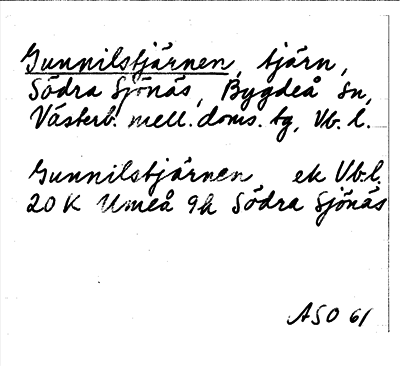 Gunnilstjärnen, tjärn,
Södra Sjönäs, Bygdeå sn,
Västerb. mell. doms. tg, Vb. l.
Gunnilstjärnen ek Vb.l.
20 K Umeå 9h Södra Sjönäs
ASO 61